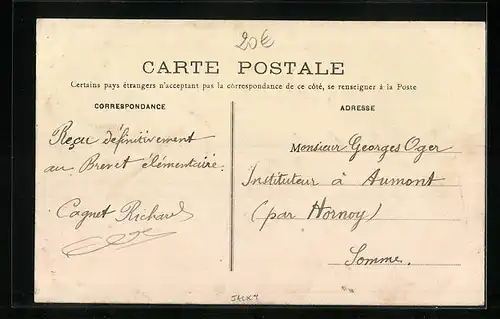 20€
CARTE POSTALE
Certains pays étrangers n'acceptant pas la correspondance de ce côté, se renseigner à la Poste
CORRESPONDANCE
Reçu définitivement
au Brevet élémentaire.
Cagnet Richard
ADRESSE
Monsieur Georges Oger
Instituteur à Aumont
(par Hornoy)
Somme.